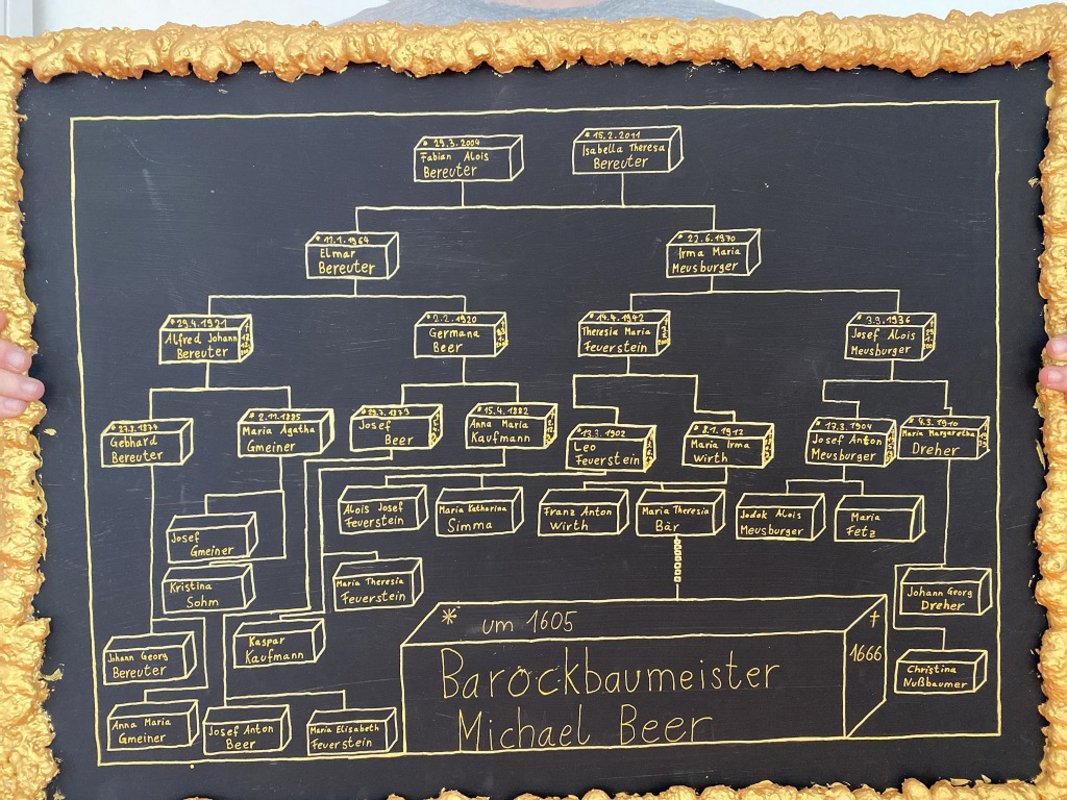 * 29.3.2004
Fabian Alois
Bereuter
* 15.2.2011
Isabella Theresa
Bereuter
* 11.1.1964
Elmar
Bereuter
* 22.6.1970
Irma Maria
Meusburger
* 29.4.1921
Alfred Johann
Bereuter
* 2.2.1920
Germana
Beer
* 14.4.1942
Theresia Maria
Feuerstein
3.9.1936
Josef Alois
Meusburger
Gebhard
Bereuter
* 2.11.1885
Maria Agatha
Gmeiner
* 29.7.1873
Josef
Beer
* 15.4.1882
Anna Maria
Kaufmann
* 13.3.1902
Leo
Feuerstein
* 2.1.1912
Maria Irma
Wirth
* 17.3.1904
Josef Anton
Meusburger
* 4.3.1910
Maria Margaretha
Dreher
Alois Josef
Feuerstein
Maria Katharina
Simma
Franz Anton
Wirth
Maria Theresia
Bär
Jodok Alois
Meusburger
Maria
Fetz
Josef
Gmeiner
Kristina
Sohm
Maria Theresia
Feuerstein
Johann Georg
Dreher
Kaspar
Kaufmann
Johann Georg
Bereuter
Christina
Nußbaumer
Anna Maria
Gmeiner
Josef Anton
Beer
Maria Elisabeth
Feuerstein
* um 1605
† 1666
Barockbaumeister
Michael Beer